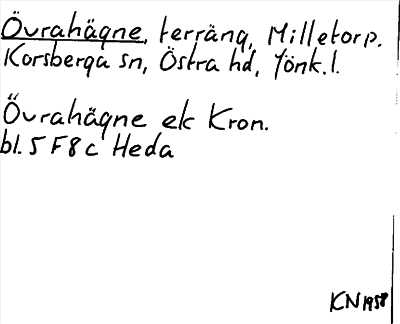 Övrahägne, terräng, Milletorp.
Korsberga sn, Östra hd, Jönk.l.
Övrahägne ek Kron.
bl. 5 F 8 c Heda
KN 1958